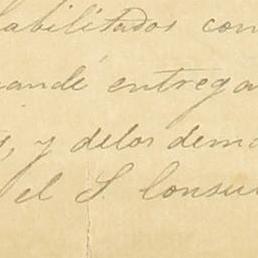 habilitados con
mandé entrega
, y delos dema
el S. Consu